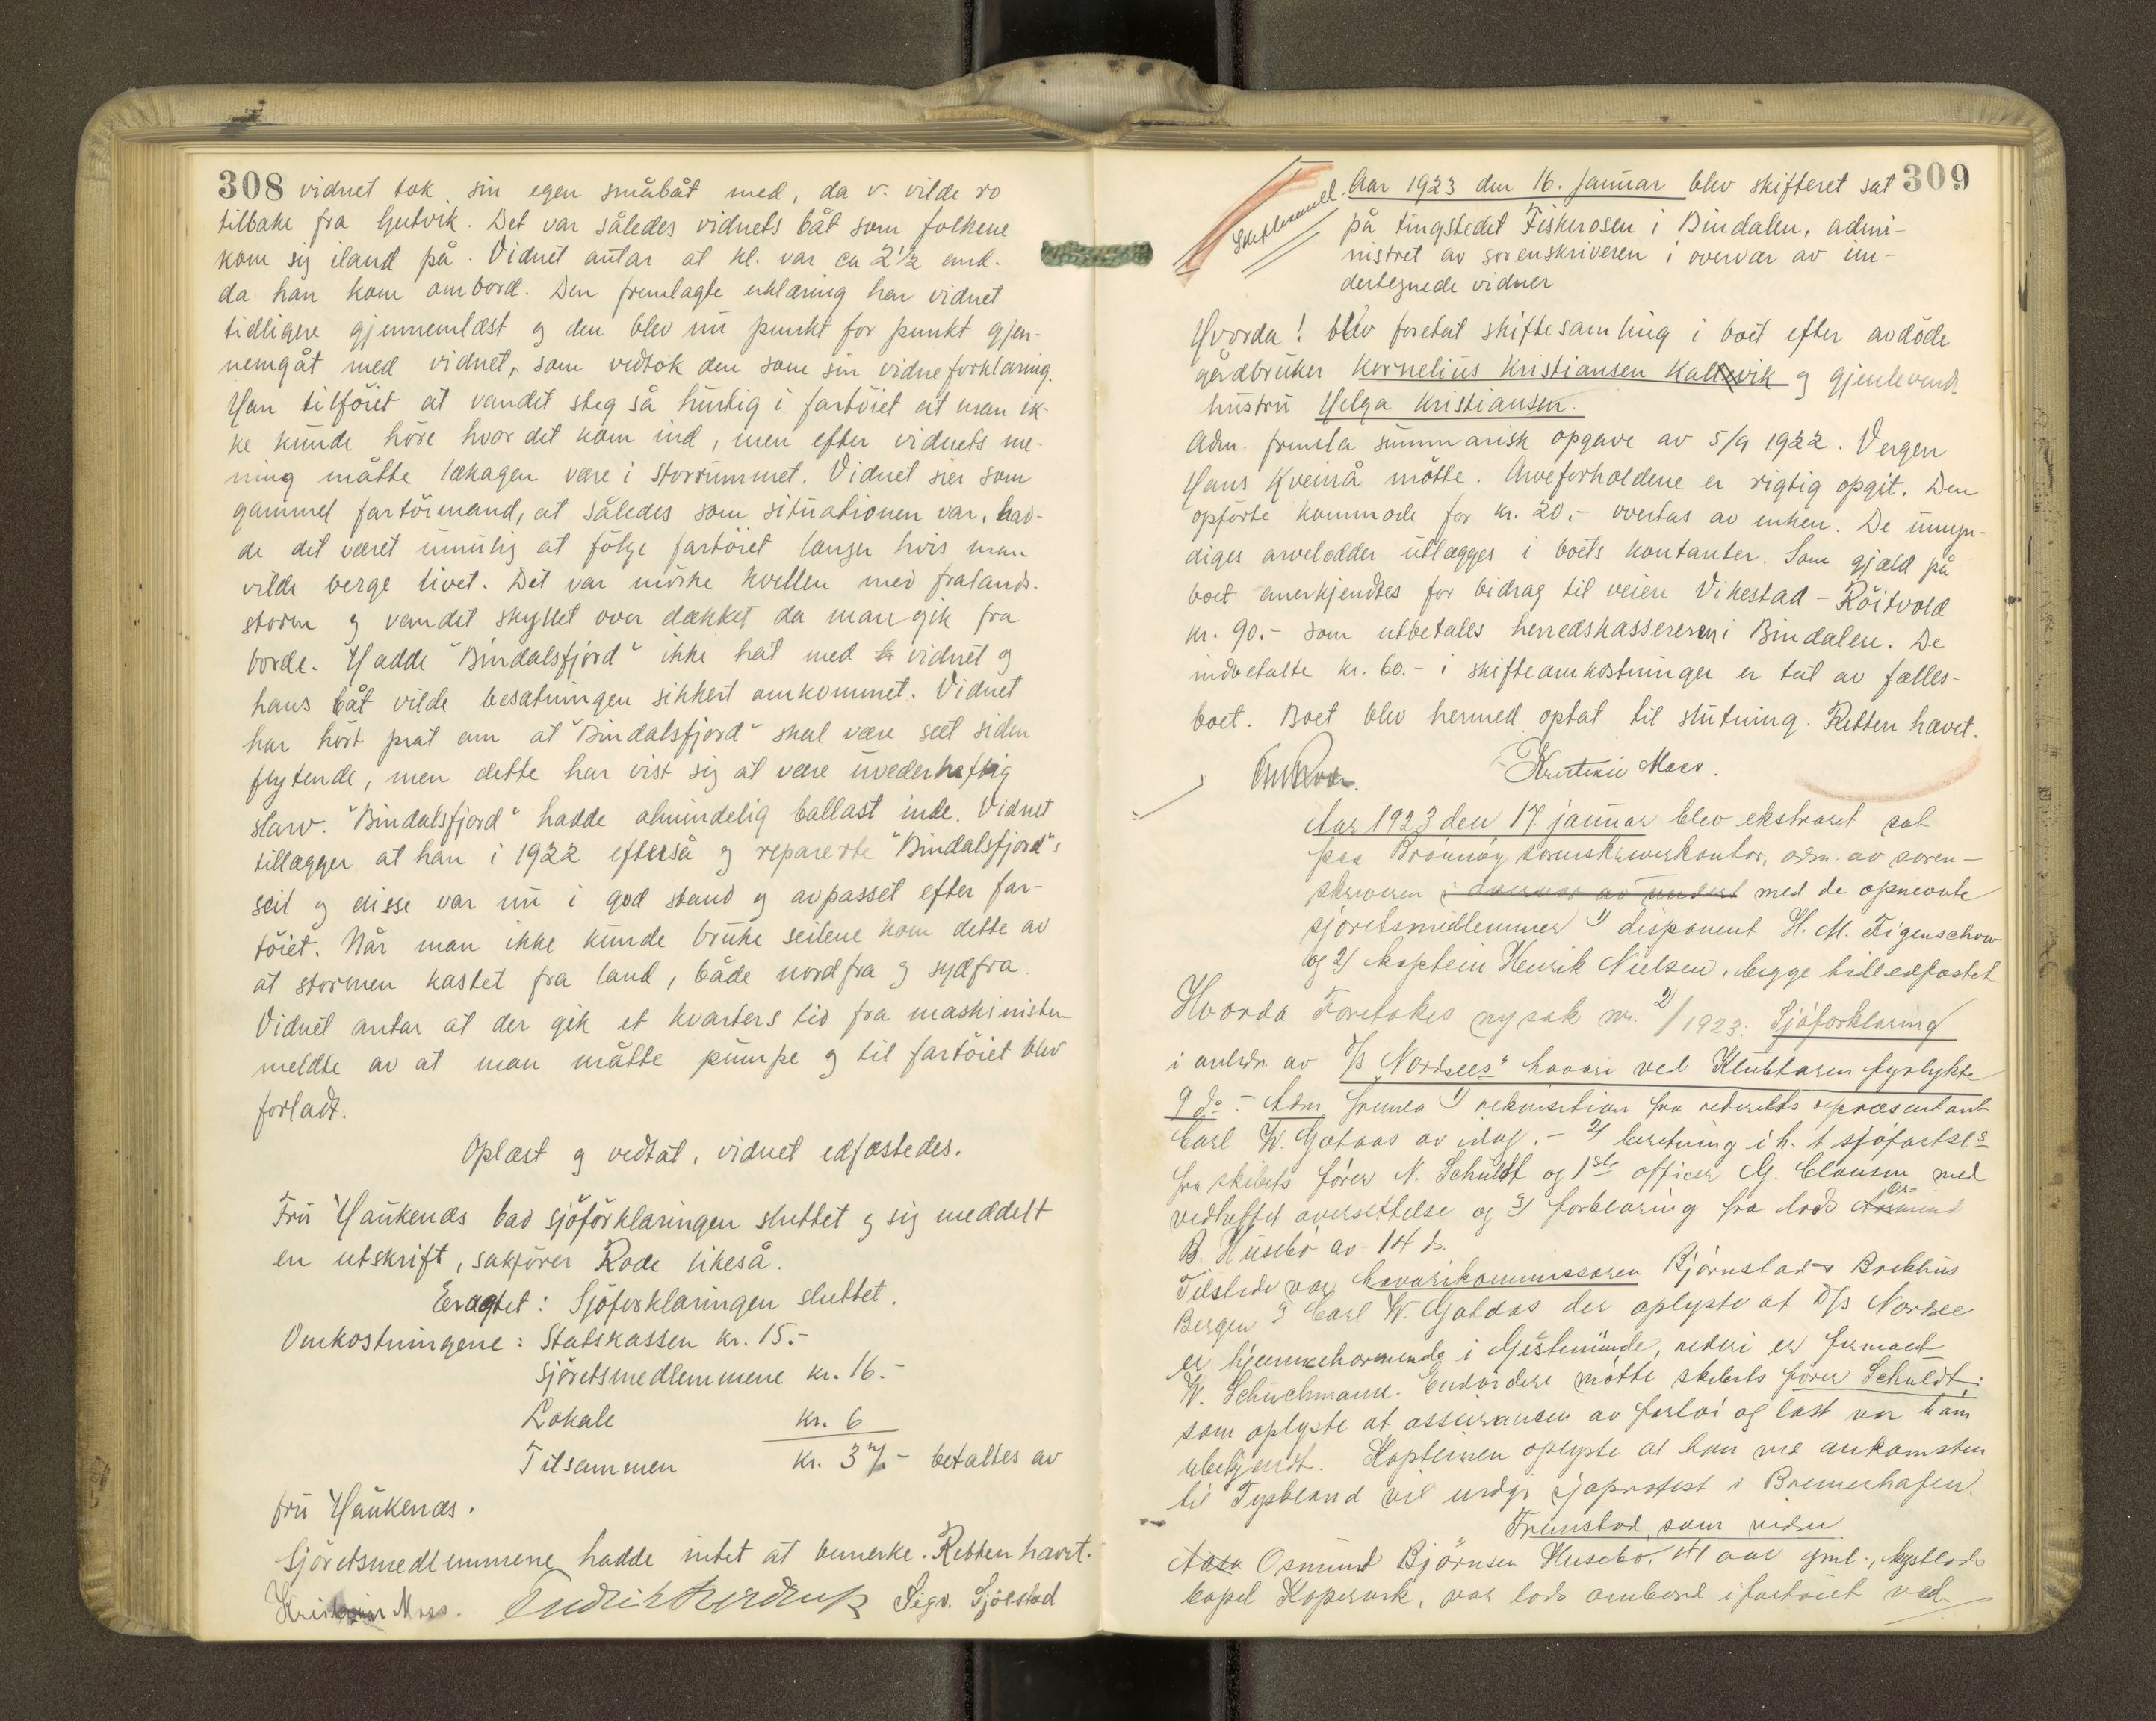 308 vidnet tok sin egen småbåt med, da v. vilde ro
tilbake fra Gutvik. Det var således vidnets båt som folkene
kom sig iland på. Vidnet antar at kl. var ca 2½ emd.
da han kom ombord. Den fremlagte erklæring har vidnet
tidligere gjennemlæst og den blev nu punkt for punkt gjen-
nemgåt med vidnet, som vedtok den som sin vidneforklaring.
Han tilföiet at vandet steg så hurtig i fartöiet at man ik-
ke kunde höre hvor det kom ind, men efter vidnets me-
ning måtte lækagen være i storrummet. Vidnet sier som
gammel fartöimand, at således som situationen var, had-
de det været umulig at fölge fartöiet længer hvis man
vilde berge livet. Det var mörke kvellen med fralands-
storm og vandet skyllet over dækket da man gik fra
borde. Hadde "Bindalsfjord" ikke hat med vidnet og
hans båt vilde besætningen sikkert omkommet. Vidnet
har hört prat om at "Bindalsfjord" skal være set siden
flytende, men dette har vist sig at være uvederheftig
slarv. "Bindalsfjord" hadde almindelig ballast inde. Vidnet
tillægger at han i 1922 efterså og reparerte "Bindalsfjord"s
seil og disse var nu i god stand og avpasset efter far-
töiet. Når man ikke kunde bruke seilene kom dette av
at stormen kastet fra land, både nordfra og sydfra.
Vidnet antar at der gik et kvarters tid fra maskinisten
meldte av at man måtte pumpe og til fartöiet blev
forladt.
Oplæst og vedtat, vidnet edfæstedes.
Fru Haukenæs bad sjöforklaringen sluttet og sig meddelt
en utskrift, sakförer Rode likeså.
Eragtet: Sjöforklaringen sluttet.
Omkostningene: Statskassen kr. 15.-
Sjöretsmedlemmene kr. 16.-
Lokale kr. 6
Tilsammen kr. 37.- betaltes av
fru Haukenæs.
Sjöretsmedlemmene hadde intet at bemerke. Retten hævet.
Moes. Sigv. Sjölstad
309
Aar 1923 den 16. januar blev skifteret sat
på tingstedet Fiskerosen i Bindalen, admi-
nistret av sorenskriveren i overvær av un-
dertegnede vidner
Hvorda! blev foretat skiftesamling i boet efter avdöde
gårdbruker Kornelius Kristiansen Kalvik og gjenlevend.
hustru Helga Kristiansen.
Adm. fremla summarisk opgave av 5/9 1922. Vergen
Hans Kveinå mötte. Arveforholdene er rigtig opgit. Den
opförte kommode for kr. 20.- overtas av enken. De umyn-
diges arvelodder utlægges i boets kontanter. Som gjæld på
boet anerkjendtes for bidrag til veien Vikestad - Röitvold
kr. 90.- som utbetales herredskassereren i Bindalen. De
indbetalte kr. 60.- i skifteomkostninger er tat av fælles-
boet. Boet blev hermed optat til slutning. Retten hævet.
Kristine Moes.
Aar 1923 den 17 januar blev ekstraret sat
paa Brönnöy sorenskriverkontor, adm. av soren-
skriveren i overvær av undert med de opnævnte
sjöretsmedlemmer 1) disponent H. M. Figenschow
og 2) kaptein Henrik Nielsen, begge tidl. edfæstet.
Hvorda Foretokes ny sak nr. 2/1923: Sjöforklaring
i anledn av D/S "Nordsees" havari ved Klubtaren fyrlykte
9 ds. - Adm fremla 1) rekvisition fra rederiets repræsentant
Carl W. Gotaas av idag. - 2) beretning i h. t sjöfartsl.
fra skibets förer N. Schuldt og 1ste officer G. Clausen med
vedheftet oversettelse og 3) forklaring fra lods Osmund
B. Husebö av 14 ds.
Tilstede var havarikommissæren Björnstad & Brækhus
Bergen v/ Carl W. Gotaas der oplyste at D/S Nordsee
er hjemmehörende i Gestemünde, rederi er firmaet
W. Schuchmann. Endvidere mötte skibets förer Schuldt,
som oplyste at assurancen av fartöi og last var ham
ubekjendt. Kapteinen oplyste at han ved ankomsten
til Tyskland vil avgi sjøprotest i Bremerhafen.
Fremstod som vidne
Osmund Björnsen Husebö, 41 aar gml., kystlods
bopel Kopervik, var lods ombord i fartöiet ved